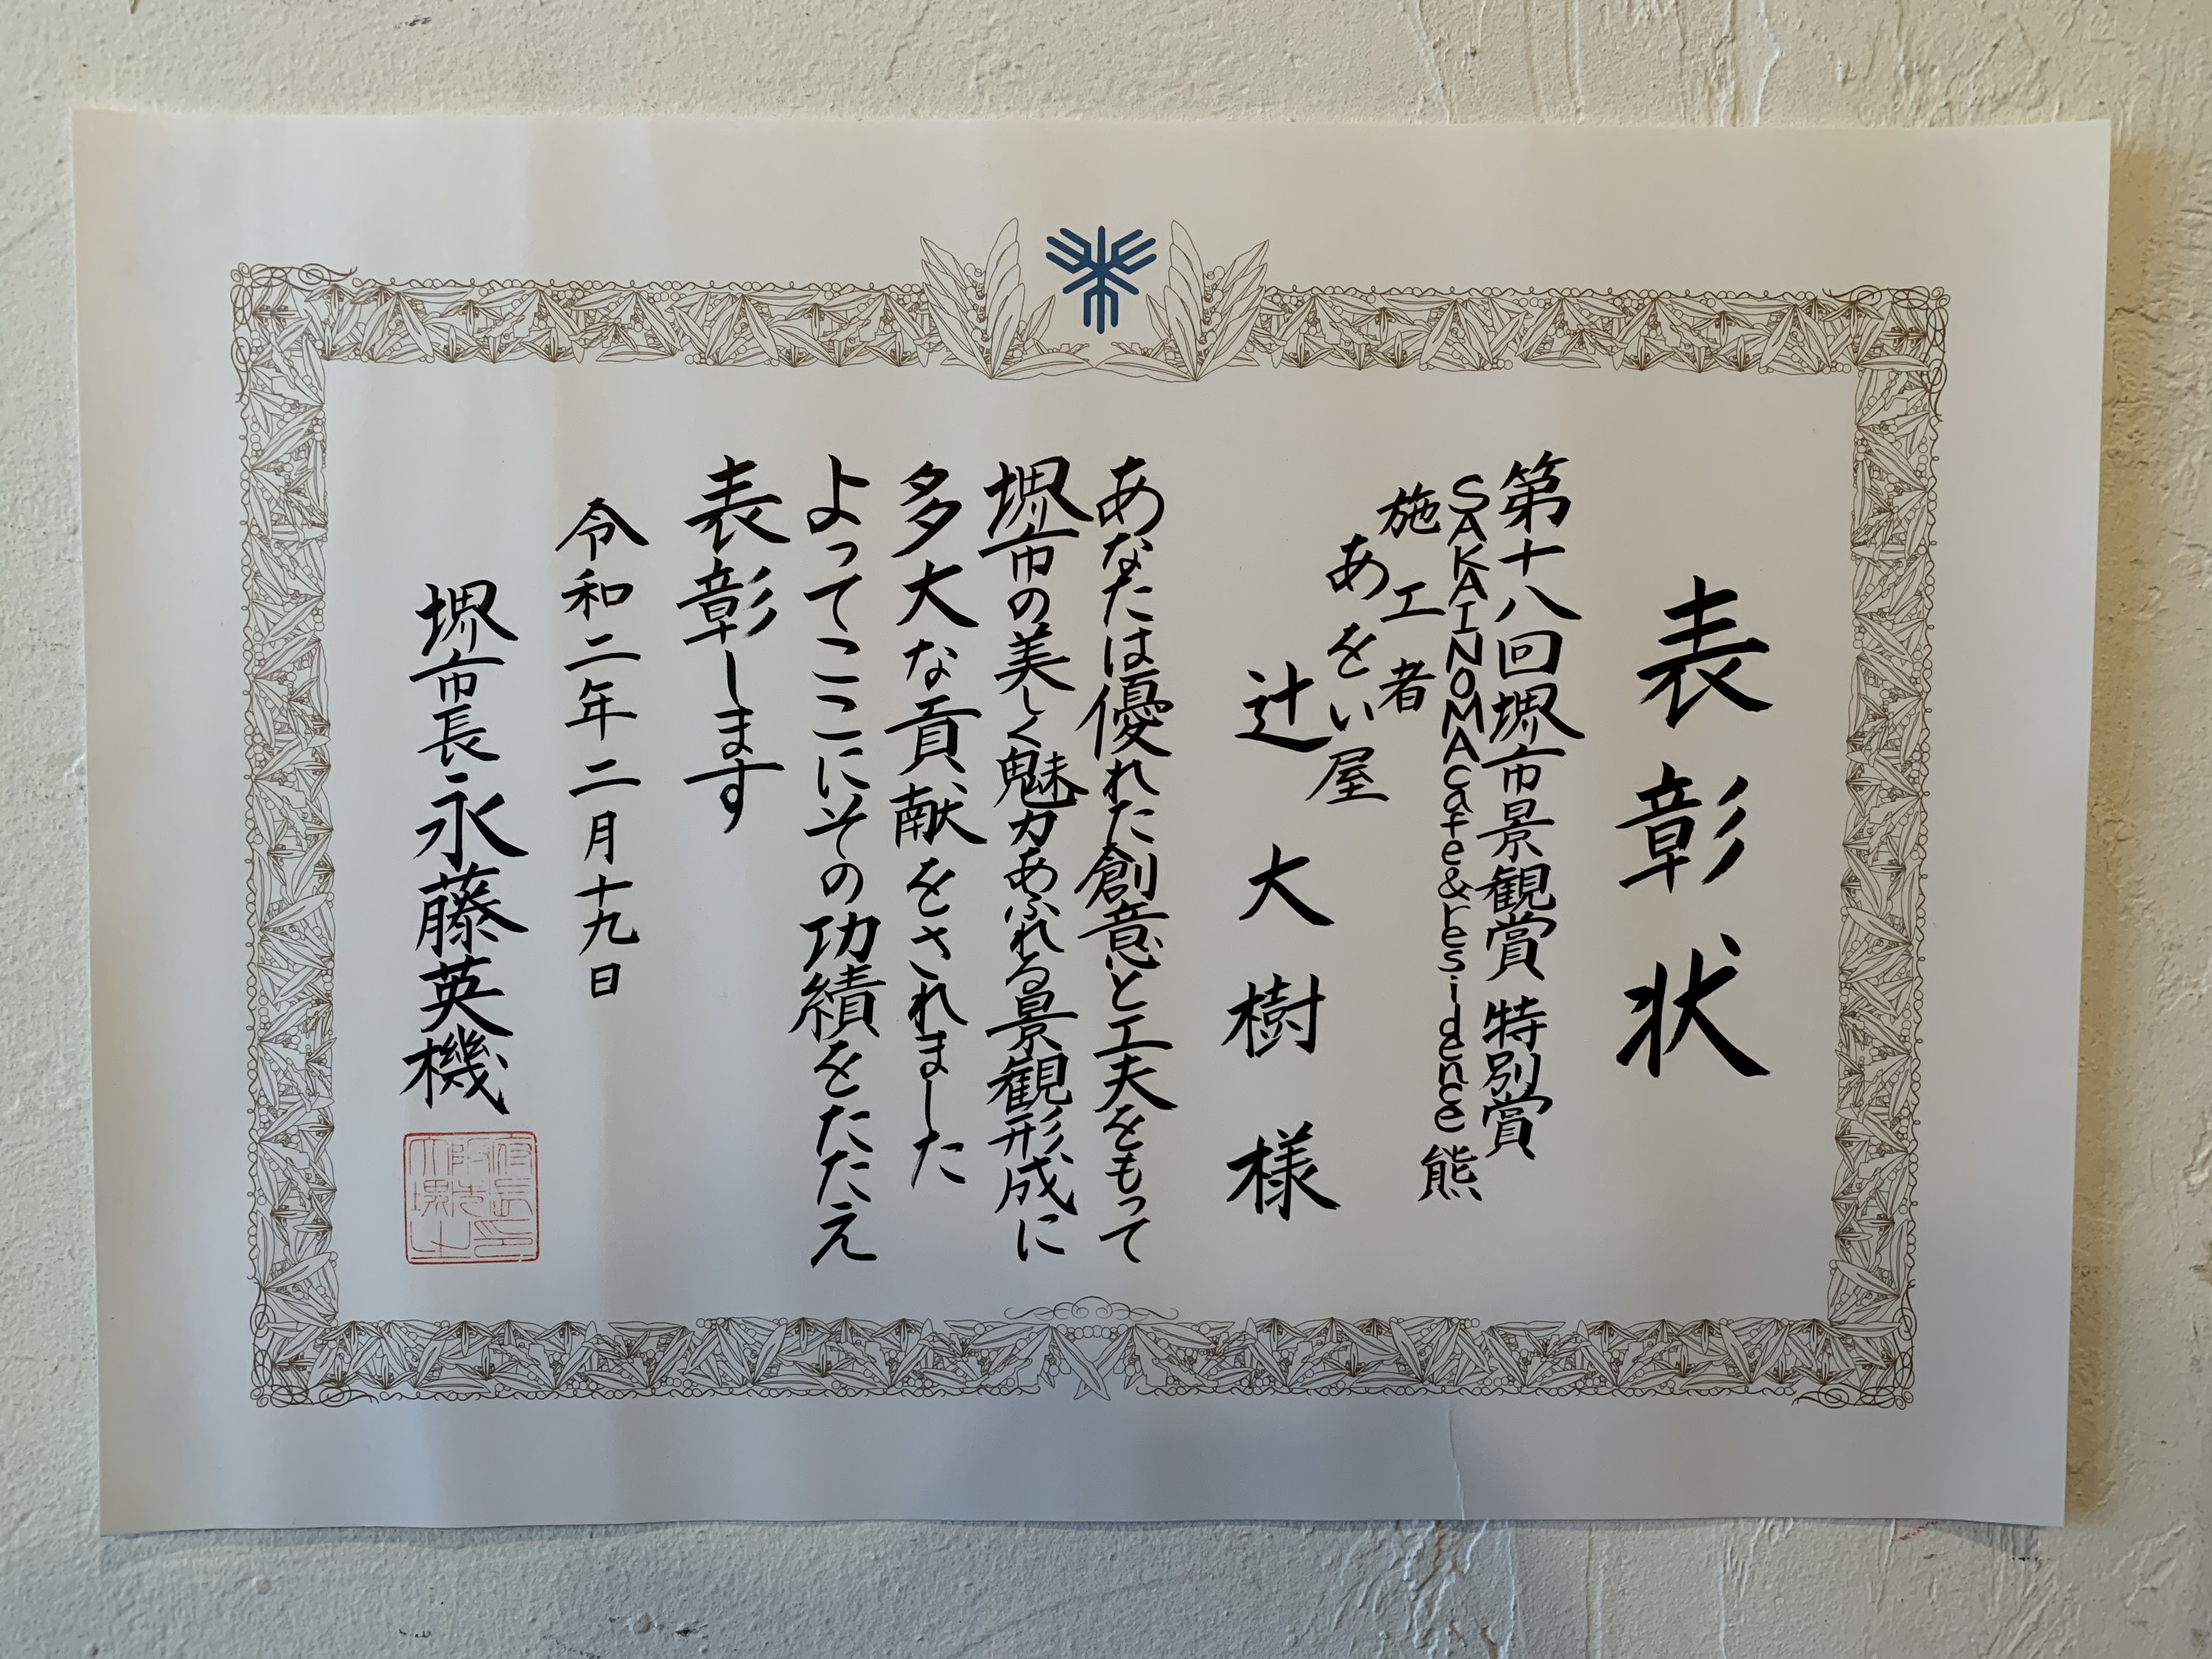 表彰状
第十八回堺市景観賞 特別賞
SAKAINOMA cafe&residence 熊
施工者
あをい屋
辻大樹様
あなたは優れた創意と工夫をもって
堺市の美しく魅力あふれる景観形成に
多大な貢献をされました
よってここにその功績をたたえ
表彰します
令和二年二月十九日
堺市長 永藤英機